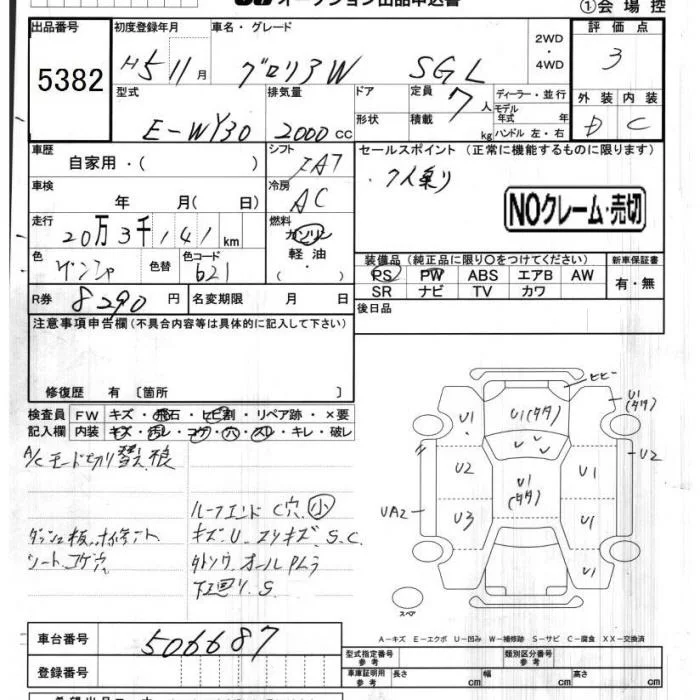 オークション出品申込書
①会場控
出品番号 5382
初度登録年月 H5 11月
車名・グレード グロリアW SGL
2WD・4WD
評価点 3
型式 E-WY30
排気量 2000cc
ドア
形状
定員 7人
積載 kg
ディーラー・並行
モデル年式 年
ハンドル 左・右
外装 内装
D C
車歴 自家用・( )
シフト IAT
セールスポイント (正常に機能するものに限ります)
・7人乗り
NOクレーム・売切
車検 年 月( 日)
冷房 AC
走行 20万3千141km
燃料 ガソリン
軽油
・
( )
色 色替 色コード 621
装備品 (純正品に限り○をつけてください)
新車保証書
PS PW ABS エアB AW
SR ナビ TV カワ
有・無
R券 8290円
名変期限 月 日
後日品
注意事項申告欄(不具合内容等は具体的に記入して下さい)
修復歴 有 〔箇所 〕
検査員 FW キズ・飛石・ヒビ割・リペア跡・×要
記入欄 内装 キズ・汚レ・コゲ・穴・スレ・キレ・破レ
A/Cモード切り替え
ルーフエンド C穴 小
ダッシュ板
キズ.U.スリキズ.S.C.
シート.コゲ穴
下回り.S
ヒビ
U1
(タタ)
U1
U1(タタ)
U2
U2
U1
(タタ)
U1
UA2
U3
U1
U1
スペア
A-キズ E-エクボ U-凹み W-補修跡 S-サビ C-腐食 XX-交換済
車台番号 506687
登録番号
型式指定番号 参考
類別区分番号 参考
車庫証明用 参考 長さ cm 幅 cm 高さ cm